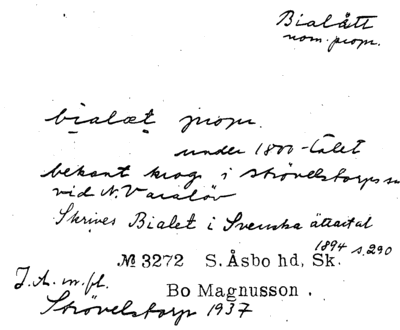 Bialätt
nom. propr.
bialæt propr.
under 1800-talet
bekant krog i Strövelstorps sn
vid N. Varalöv
Skrives Bialet i Svenska ättartal
1894 s. 290
№ 3272 S. Åsbo hd, Sk.
J. A. m. fl.
Bo Magnusson.
Strövelstorp 1937